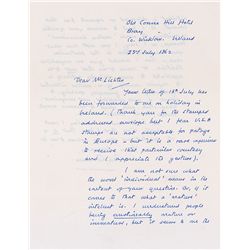 Old Connna Hill Hotel
Bray
Co. Wicklow. Ireland
25th July 1962
Dear Mr Lister
Your letter of 18th July has
been forwarded to me on holiday in
Ireland. (Thank you for the stamped
addressed envelope but I fear U.S.A
stamps are not acceptable for postage
in Europe – but it is a rare experience
to receive this particular courtesy
and I appreciate the gesture).
I am not sure what
the word 'individual' means in the
context of your question. Or, if it
comes to that what a 'mature
intellect' is. I understand people
being emotionally mature or
immature, but it seems to me the